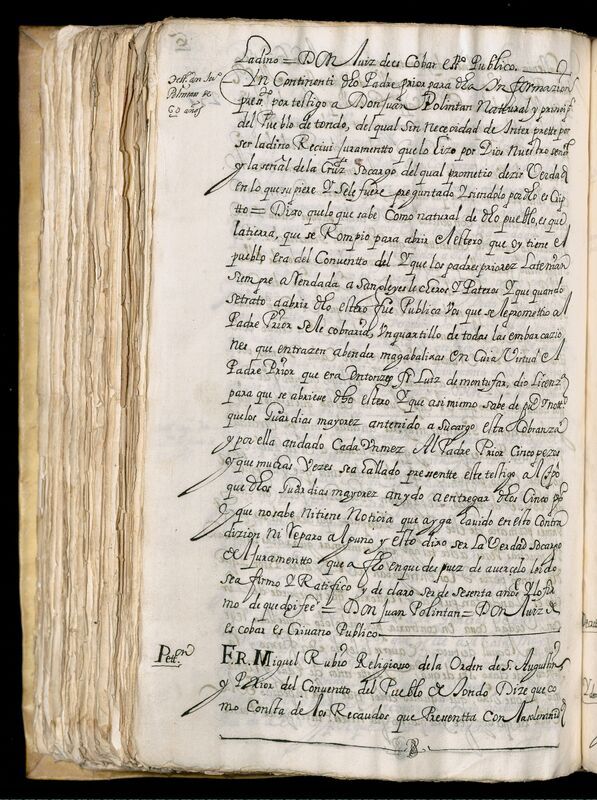 Ladino = DON Luiz de es Cobar essno Publico.
Test.o Don Ju.o
Polintan de
60 años
En Continenti dho Padre prior para dha Informazion
press.to por testigo a Don Juan Polintan Natural y prinçip.l
del Pueblo de tondo, del qual sin necesidad de Inter prette por
ser ladino Recivi juramentto que lo hizo por Dios Nuestro señor
y la señal de la Cruz Socargo del qual prometio dezir Verdad
en lo que supiere y se le fuere preguntado y siendolo por dho es Crip
tto = Dixo quelo que sabe Como natural de dho pueblo, es que
la tierra, que se Rompio para abrir el estero que oy tiene el
pueblo era del Conventto del y que los padres priorez la tenian
siempre a Rendada a Sangleyes le cheros y Pateros y que quando
se trato d abrir dho estero fue Publica Voz que se le promettio al
Padre Prior se le cobraria, Un quartillo de todas las embarcazio
nes que entrazen a bender Cuia Virtud el
Padre Prior que era Entonzes fr Luiz de montufar, dio Licenz.a
para que se abriese dho estero y que asi mismo sabe de pu.co y nott.o
quelos Guardias mayorez an tenido a Su cargo esta Cobranza
y por ella an dado Cada Un mez Al Padre Prior Cinco pezos
y que muchas Vezes sea hallado pressentte este testigo al tpo
que dhos Guardias mayorez an ydo a entregar dhos Cinco p.os
y que no sabe ni tiene Noticia que ayga havido en esto Contra
dizion Ni Reparo alguno y esto dixo ser La Verdad Socargo
del Juramentto que a fho en que des puez de avercelo leido
sea firmo y Ratifico y de claro ser de sesenta años y lo fir
mo de que doi fee = DON Juan Polintan = DON Luiz de
es cobar es Crivano Publico
Pett.on
FR. Miguel Rubio Religiosso de la Orden de S. Augustin
y Prior del Conventto del Pueblo de Tondo Dize que co
mo Consta de los Recaudos que Pressentta Con la solemnid.d